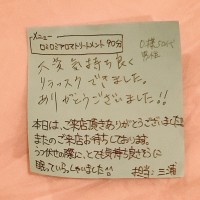 メニュー
ロミロミアロマトリートメント 90分
大変気持ち良く
リラックスできました。
ありがとうございました!!
本日は、ご来店頂きありがとうございました
またのご来店お待ちしております。
うつ伏せの際に、とても気持ち良さそうに
眠っていらっしゃいました^^
担当:三浦